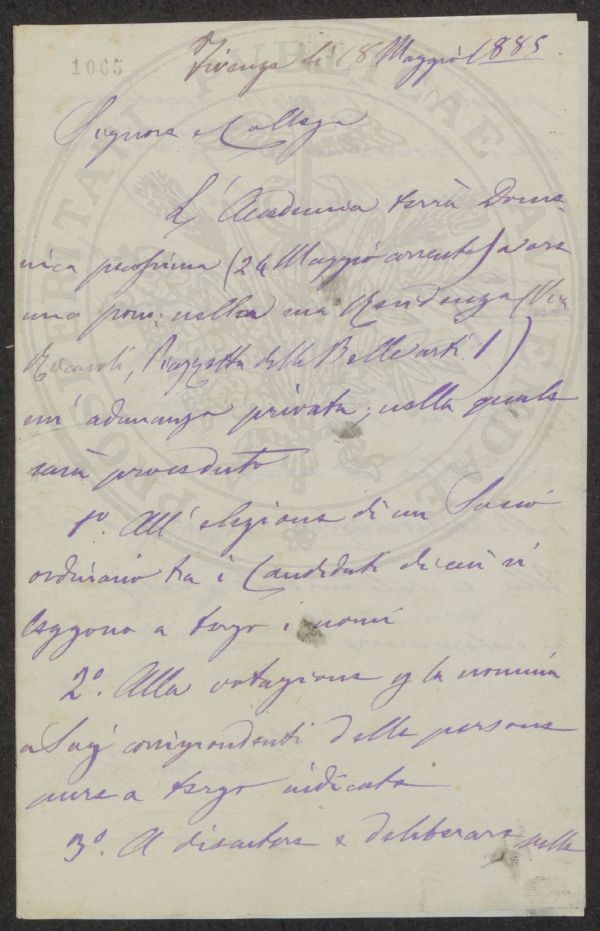 PROSPERITATI PUBLICAE AUGENDAE
1065
Firenze li 18 Maggio 1885
Signore e Collega
L'Accademia terrà Dome-
nica prossima (24 Maggio corrente) a ore
una pom: nella sua Residenza (Via
Ricasoli, Piazzetta delle Belle arti 1)
un' adunanza privata, nella quale
sarà proceduto
1º. All' elezione di un Socio
ordinario tra i Candidati di cui si
leggono a tergo i nomi
2º. Alla votazione p la nomina
a Socj corrispondenti delle persone
pure a tergo indicate
3º. A discutere e deliberare sulle